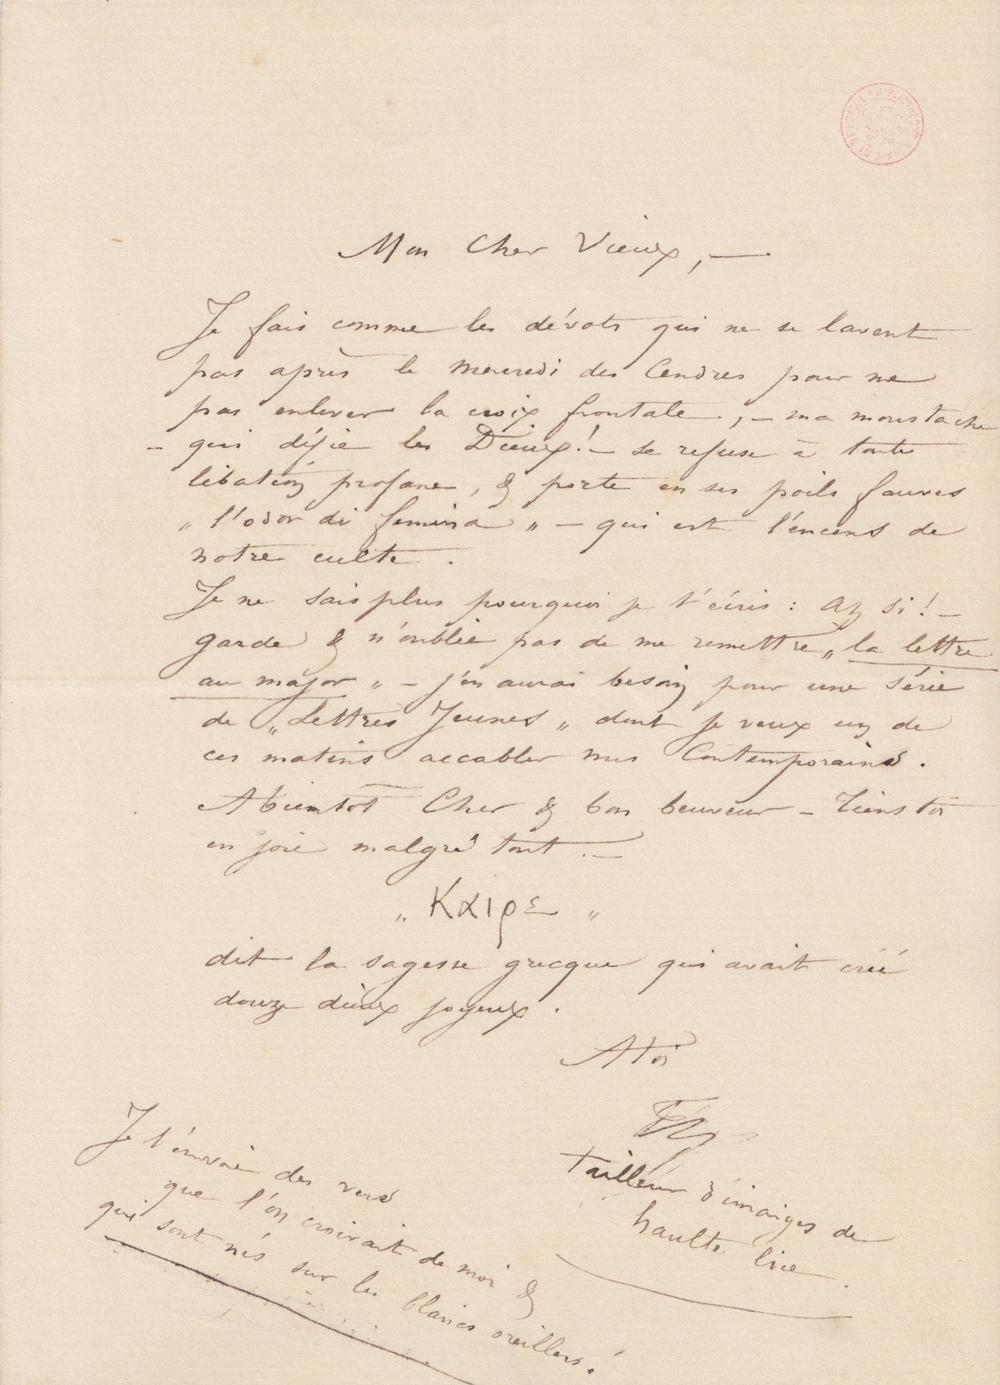 Mon Cher Vieux, —
Je fais comme les dévots qui ne se lavent
pas après le Mercredi des Cendres pour ne
pas enlever la croix frontale, – ma moustache
– qui défie les Dieux! – se refuse à toute
libation profane, & porte en ses poils fauves
„ l'odor di femina „ – qui est l'encens de
notre culte.
Je ne sais plus pourquoi je t'écris : Ah si! –
garde & n'oublie pas de me remettre „ la lettre
au major „ – j'en aurai besoin pour une série
de „ Lettres Jeunes „ dont je veux un de
ces matins accabler mes Contemporains.
A bientôt Cher & bon beuveur – Tiens toi
en joie malgré tout. –
„ Καιρε „
dit la sagesse grecque qui avait créé
douze dieux joyeux.
A toi
tailleur d'imaiges de
haulte lice.
Je t'envoie des vers
que l'on croirait de moi &
qui sont nés sur les blancs oreillers!